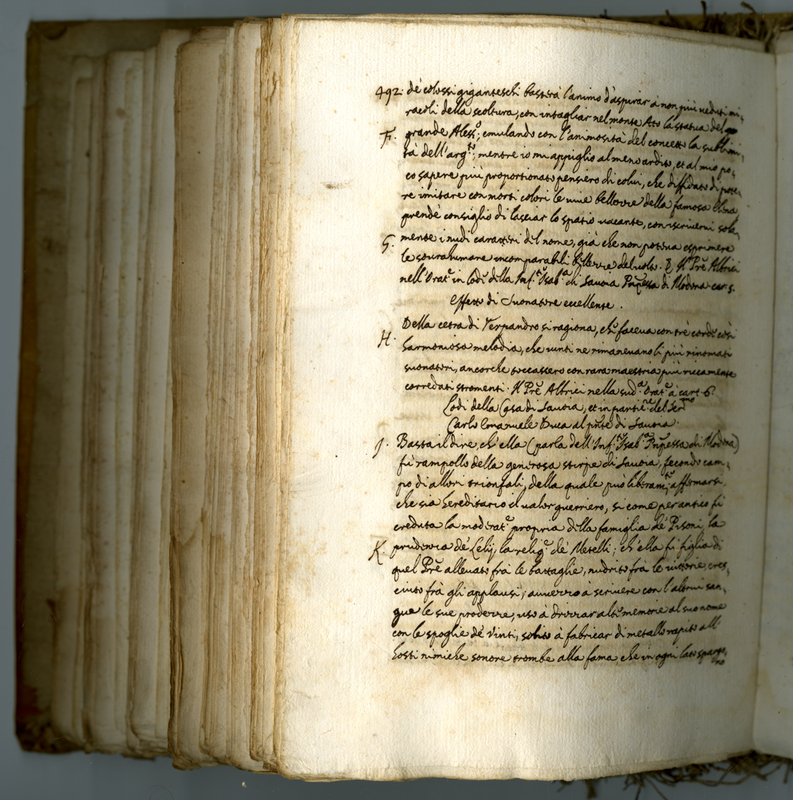 492. de colossi giganteschi basterà l'animo d'aspirar a non più veduti mi-
racoli della scoltura, con intagliar nel monte Ato la statua del
F. grande Aless.o; emulando con l'animosità del concetto la sublimi-
tà dell'arg.to; mentre io mi appiglio al meno ardito, et al mio po-
co sapere più proportionato pensiero di colui, che diffidato di pote-
re imitare con morti colori le vive bellezze della famosa Elena
prende consiglio di lasciar lo spatio vacante, con iscrivervi sola-
G. mente i nudi caratteri del nome, già che non poteva esprimere
le sovrahumane incomparabili bellezze del volto. Il Pre Albrici
nell'Orat.e in lode della Inf.a Isab.a di Savoia Prñpessa di Modena car. 5.
Effetti di Suonatore eccellente.
H. Della cetra di Terpandro si ragiona, che faceva con trè corde così
harmoniosa melodia, che vinti ne rimanevano li più rinomati
suonatori, ancorche toccassero con rara maestria più riccamente
corredati stromenti. Il Pre Albrici nella sud.a Orat.e à cart. 6.
Lodi della Casa di Savoia, et in partic.re del Ser.mo
Carlo Emanuele Duca al pñte di Savoia.
J. Basta il dire, ch'ella (parla dell'Inf.a Isab.a Prñpessa di Modena)
fù rampollo della generosa stirpe di Savoia, fecondo cam-
po di allori trionfali, della quale può liberam.te affermarsi,
che sia hereditario il valor guerriero, si come per antico fù
creduta la moderat.e propria della famiglia de Pisoni, la
K. prudenza de Lelij, la relig.e de Metelli; ch'ella fù figlia di
quel Pre allevato frà le battaglie, nudrito frà le vittorie, cres-
ciuto frà gli applausi; avvezzo à scrivere con l'altrui san-
gue le sue prodezze, uso à drizzar alte memorie al suo nome
con le spoglie de vinti, solito à fabricar di metallo rapito all'
hosti nimiche sonore trombe alla fama che in ogni lato sparge-
no